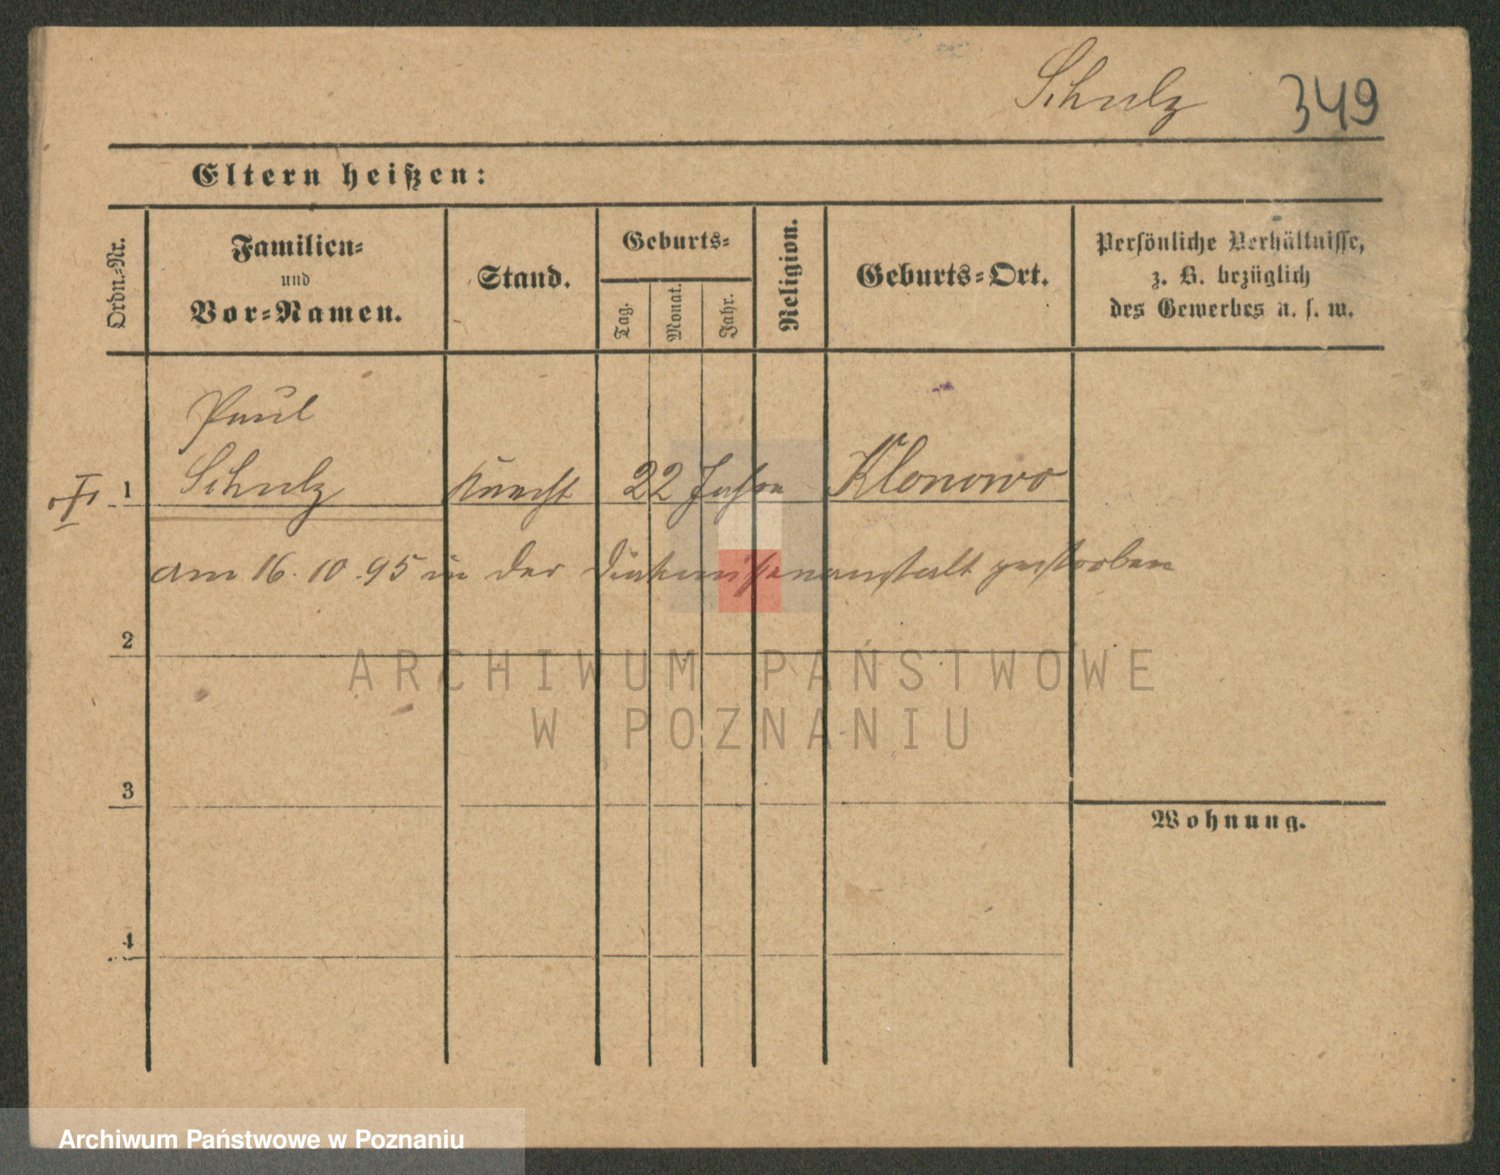 Schulz 349
Eltern heißen:
Ordn.-Nr.
Familien-
und
Vor-Namen.
Stand.
Geburts-
Tag.
Monat.
Jahr.
Religion.
Geburts-Ort.
Persönliche Verhältnisse,
z. B. bezüglich
des Gewerbes u. s. w.
Paul
1 Schulz Knecht 22 Jahre Klonowo
am 16.10.95 in der Diakonissenanstalt gestorben
2
ARCHIWUM PAŃSTWOWE
W POZNANIU
3
Wohnung.
4
Archiwum Państwowe w Poznaniu